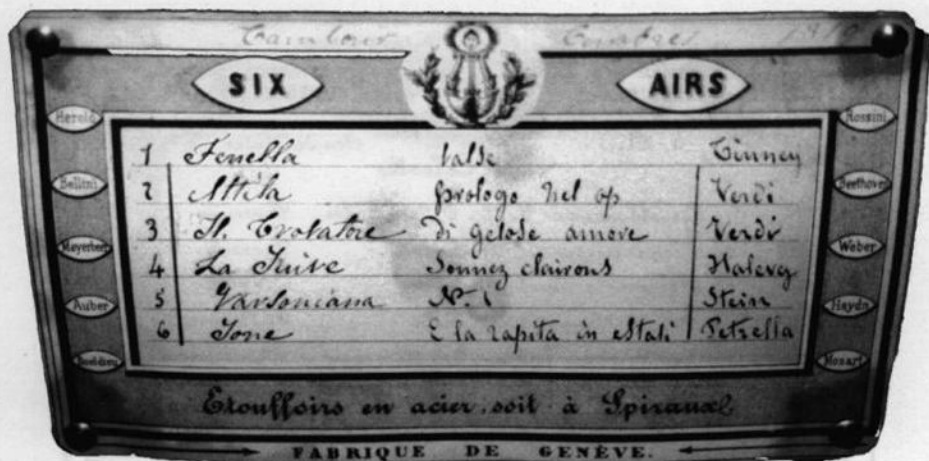 Tambour Timbres
SIX AIRS
Herold Rossini
Bellini Beethoven
Meyerber Weber
Auber Haydn
Mozart
1 Fenella Valse Tinney
2 Attila prologo nel op Verdi
3 Il Trovatore Di gelose amore Verdi
4 La Juive Sonnez clairons Halevy
5 Varsoviana No. 1 Stein
6 Jone E la rapita in estasi Petrella
Etouffoirs en acier, soit à Spiraux
FABRIQUE DE GENÈVE.